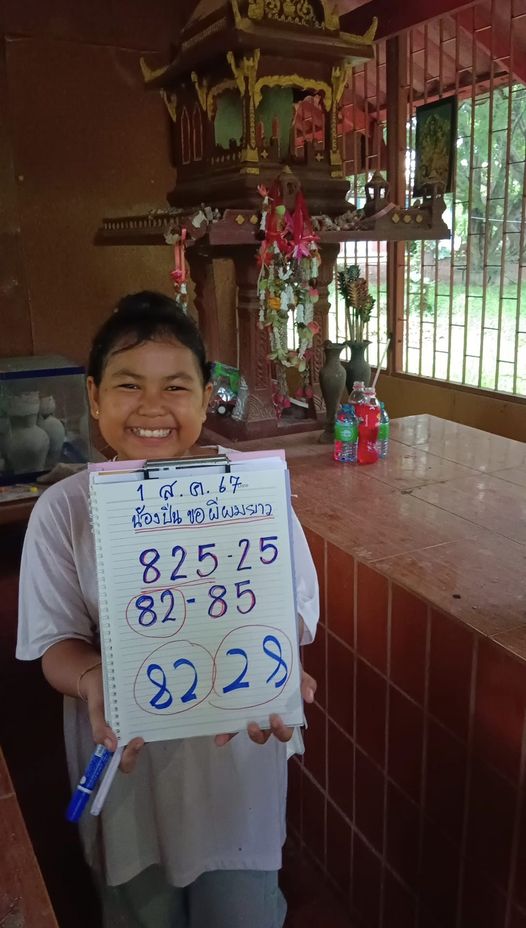 1 ส.ค. 67
น้องปิ่น ขอผีผมยาว
825-25
82-85
82 28